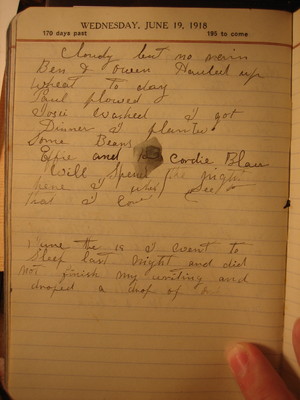 WEDNESDAY, JUNE 19, 1918
170 days past 195 to come
Cloudy but no
Ben & Owen Hauled up
wheat to day
Paul plowed
washed I got
Dinner I
Some Beans
Effie and Cordie
Will Spend the night
here I
I
June the is I went to
Sleep last night and did
not finish my writing and
droped a drop of